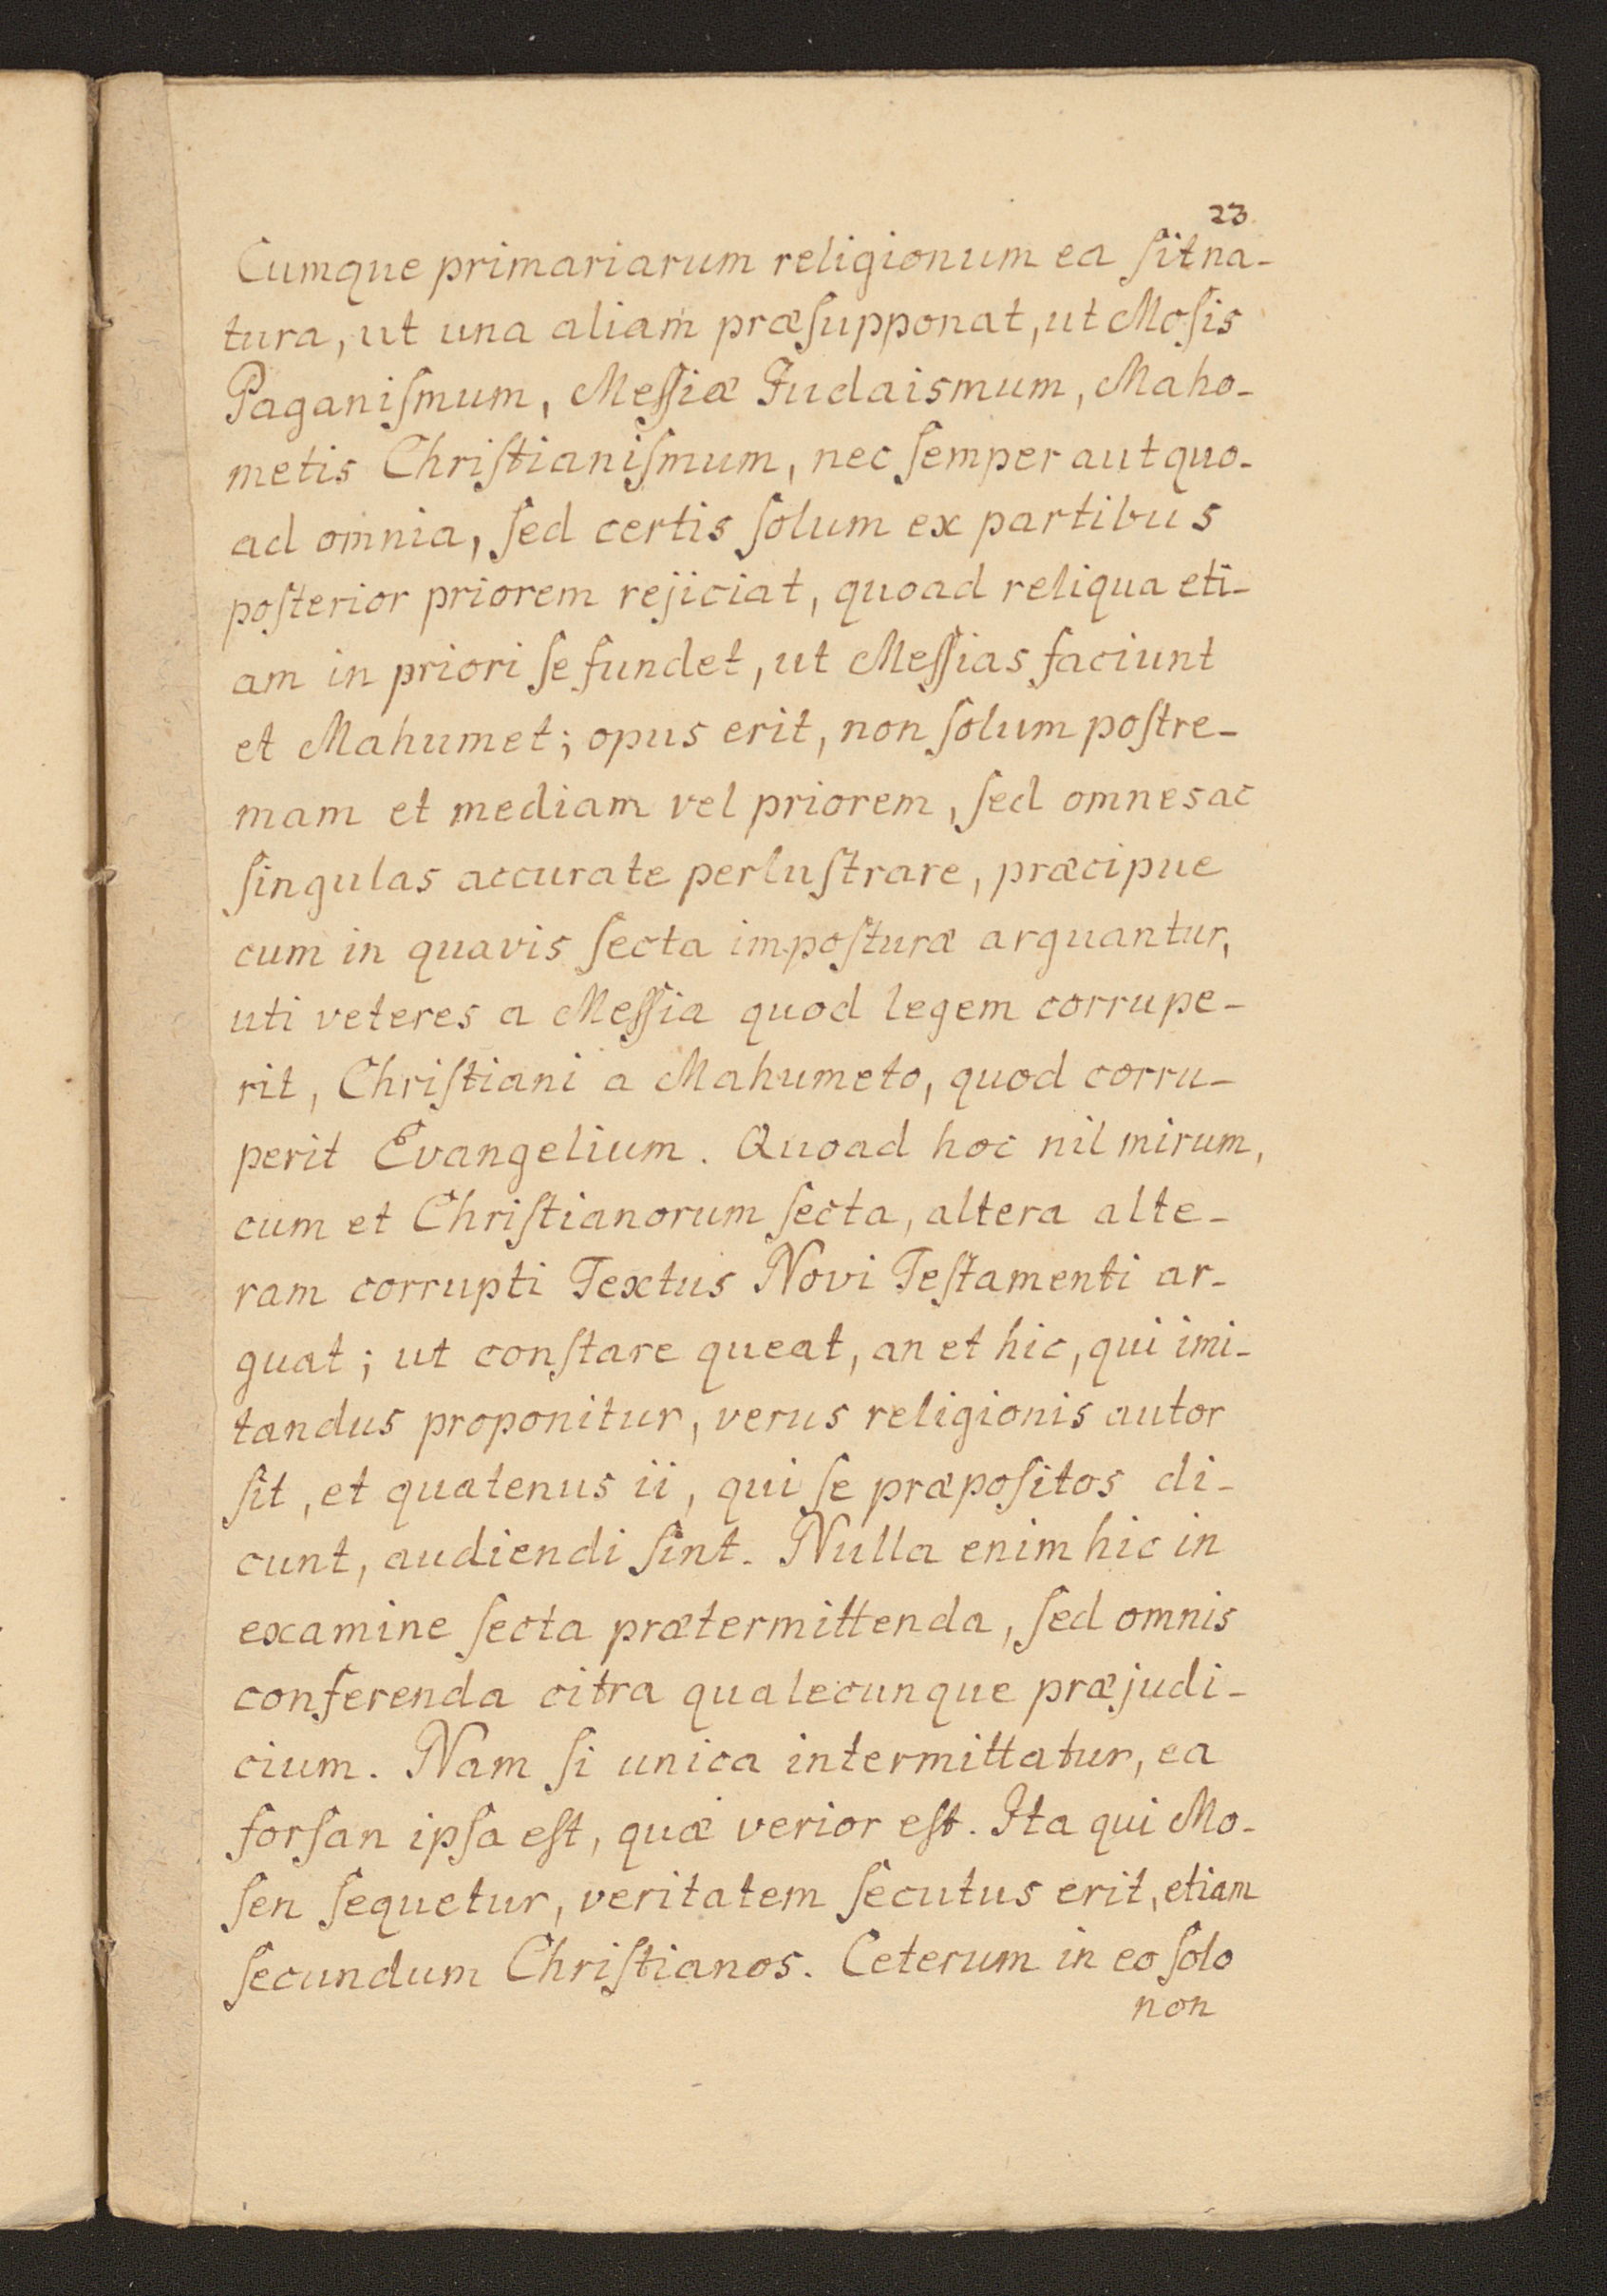 23
Cumque primariarum religionum ea ſit na-
tura, ut una aliam præſupponat, ut Moſis
Paganiſmum, Meſſiæ Judaismum, Maho-
metis Chriſtianiſmum, nec ſemper aut quo-
ad omnia, ſed certis ſolum ex partibus
poſterior priorem rejiciat, quoad reliqua eti-
am in priori ſe fundet, ut Meſſias faciunt
et Mahumet; opus erit, non ſolum poſtre-
mam et mediam vel priorem, ſed omnes ac
ſingulas accurate perluſtrare, præcipue
cum in quavis ſecta impoſturæ arguantur,
uti veteres a Meſſia quod legem corrupe-
rit, Chriſtiani a Mahumeto, quod corru-
perit Evangelium. Quoad hoc nil mirum,
cum et Chriſtianorum ſecta, altera alte-
ram corrupti Textus Novi Teſtamenti ar-
guat; ut conſtare queat, an et hic, qui imi-
tandus proponitur, verus religionis autor
ſit, et quatenus ii, qui ſe præpoſitos di-
cunt, audiendi ſint. Nulla enim hic in
examine ſecta prætermittenda, ſed omnis
conferenda citra qualecunque præjudi-
cium. Nam ſi unica intermittatur, ea
forſan ipſa eſt, quæ verior eſt. Ita qui Mo-
ſen ſequetur, veritatem ſecutus erit, etiam
ſecundum Chriſtianos. Ceterum in eo ſolo
non